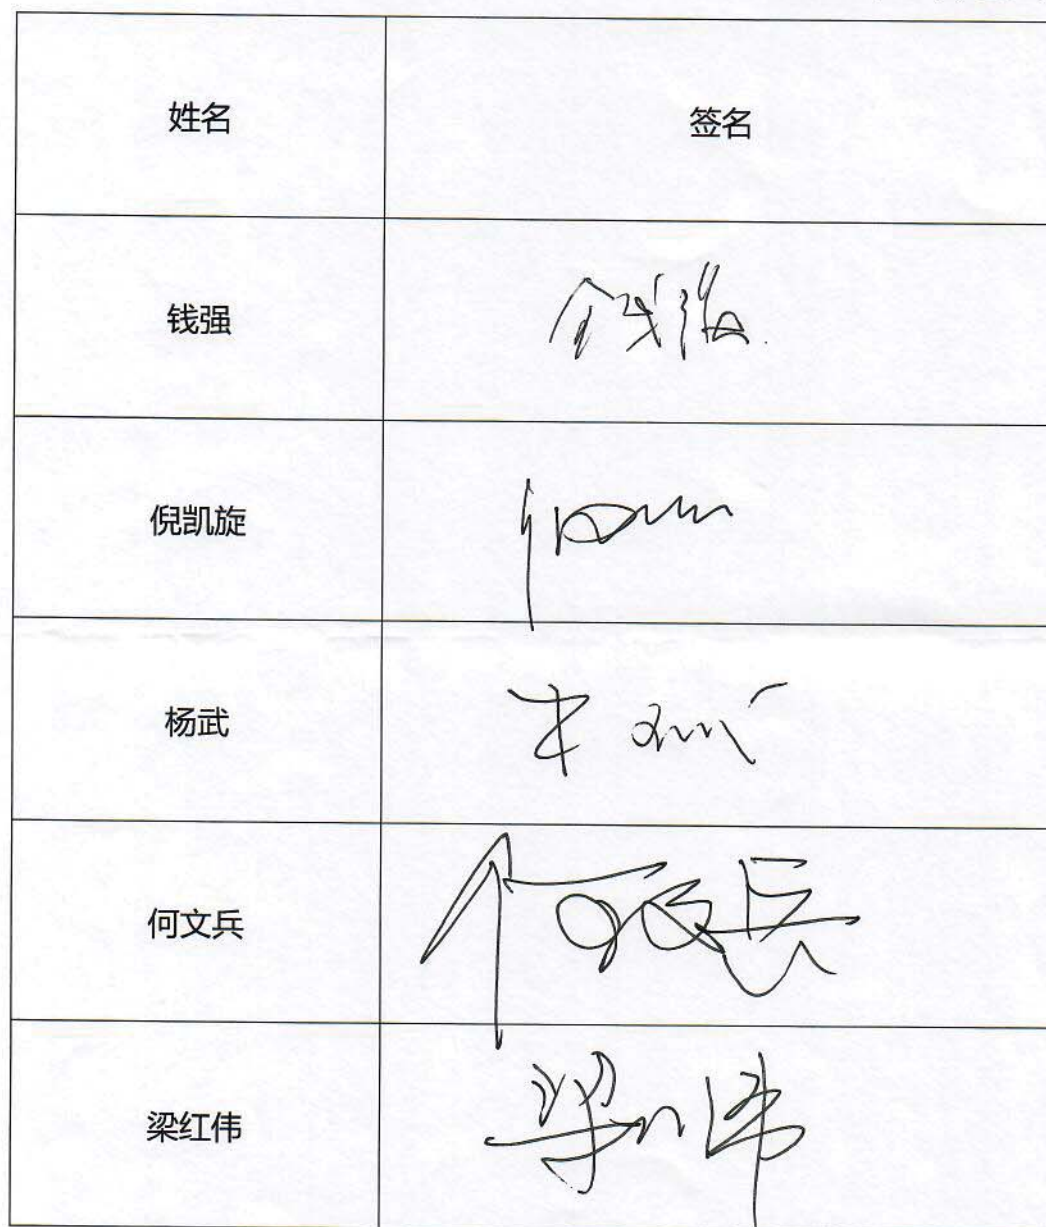 姓名 签名
钱强 钱强
倪凯旋
杨武
何文兵 何文兵
梁红伟 梁红伟